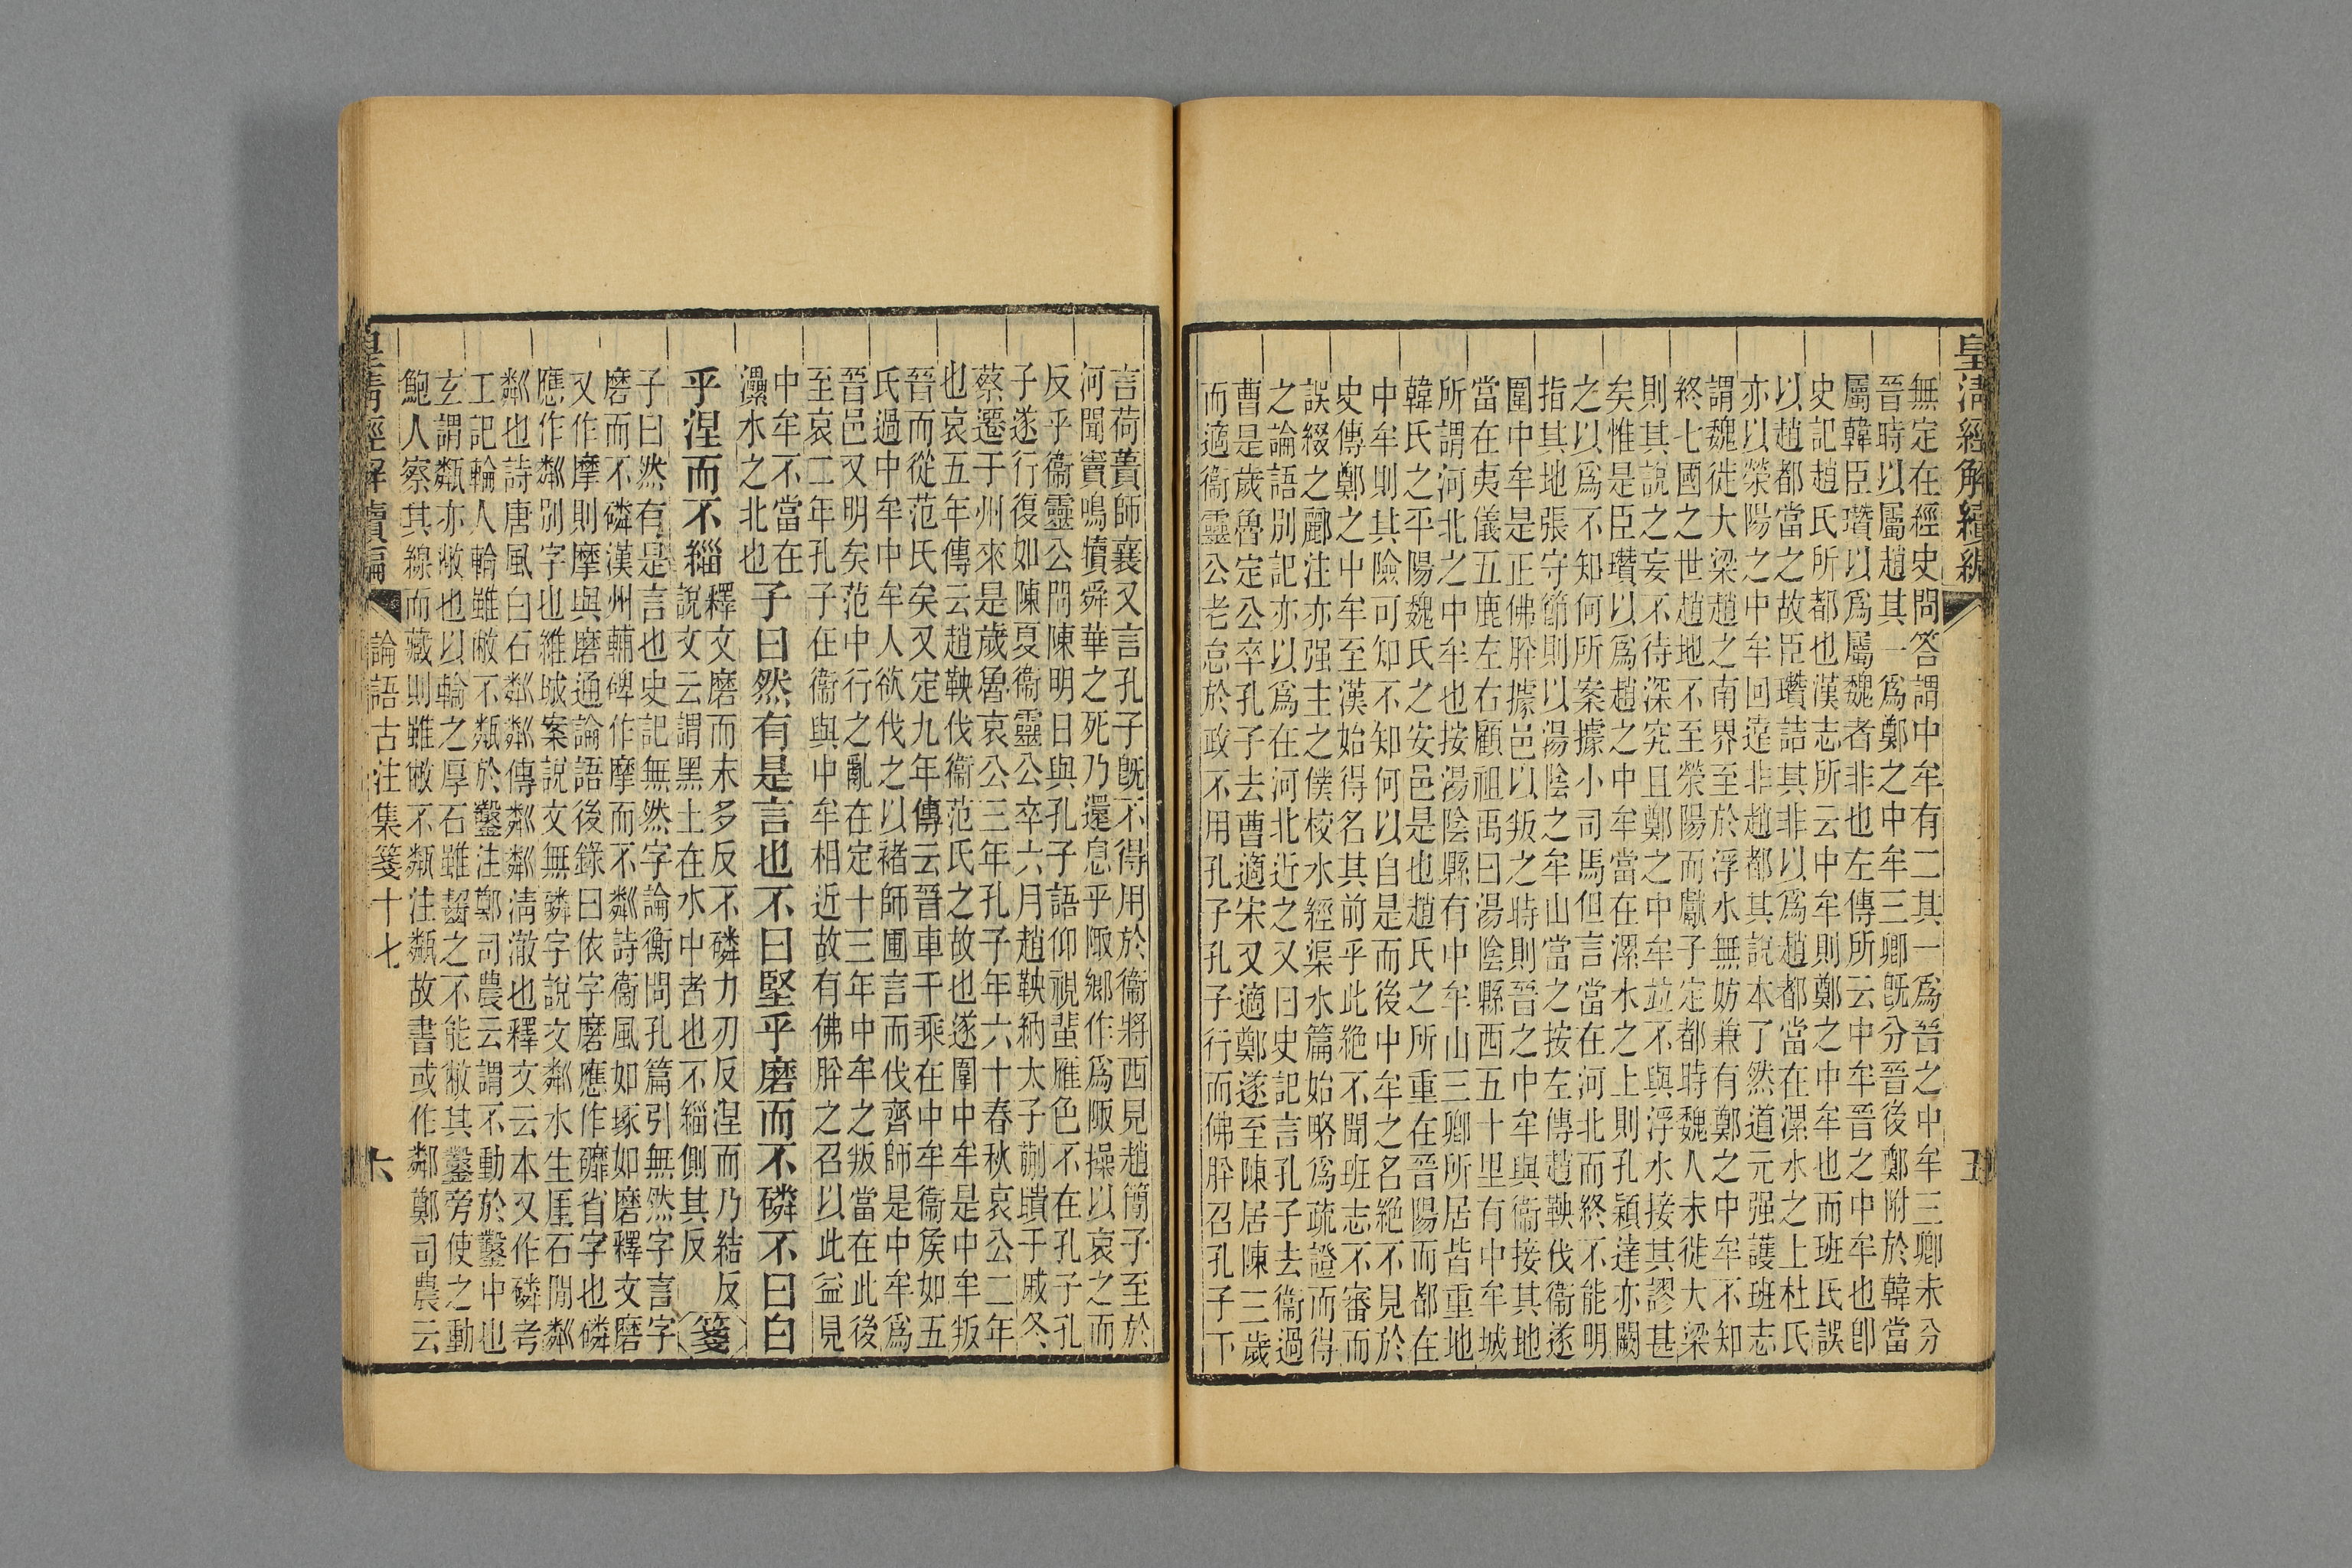 皇清經解續編
五
無定在經史問答謂中牟有二其一爲晉之中牟三卿未分
晉時以屬趙其一爲鄭之中牟三卿既分晉後鄭附於韓當
屬韓臣瓚以爲屬魏者非也左傳所云中牟晉之中牟也卽
史記趙氏所都也漢志所云中牟則鄭之中牟也而班氏誤
以趙都當之故臣瓚詰其非以爲趙都當在漯水之上杜氏
亦以滎陽之中牟回遠非趙都其說本了然道元强護班志
謂魏徙大梁趙之南界至於浮水無妨兼有鄭之中牟不知
終七國之世趙地不至滎陽而獻子定都時魏人未徙大梁
則其說之妄不待深究且鄭之中牟竝不與浮水接其謬甚
矣惟是臣瓚以爲趙之中牟當在漯水之上則孔穎達亦闕
之以爲不知何所案據小司馬但言當在河北而終不能明
指其地張守節則以湯陰之牟山當之按左傳趙鞅伐衞遂
圍中牟是正佛肸據邑以叛之時則晉之中牟與衞接其地
當在夷儀五鹿左右顧祖禹曰湯陰縣西五十里有中牟城
所謂河北之中牟也按湯陰縣有中牟山三卿所居皆重地
韓氏之平陽魏氏之安邑是也趙氏之所重在晉陽而都在
中牟則其險可知不知何以自是而後中牟之名絶不見於
史傳鄭之中牟至漢始得名其前乎此絶不聞班志不審而
誤綴之酈注亦强主之僕校水經渠水篇始略爲疏證而得
之論語別記亦以爲在河北近之又曰史記言孔子去衞過
曹是歲魯定公卒孔子去曹適宋又適鄭遂至陳居陳三歲
而適衞靈公老怠於政不用孔子孔子行而佛肸召孔子下
言荷蕢師襄又言孔子既不得用於衞將西見趙簡子至於
河聞竇鳴犢舜華之死乃還息乎陬鄉作爲陬操以哀之而
反乎衞靈公問陳明日與孔子語仰視蜚雁色不在孔子孔
子遂行復如陳夏衞靈公卒六月趙鞅納太子蒯聵于戚冬
蔡遷于州來是歲魯哀公三年孔子年六十春秋哀公二年
也哀五年傳云趙鞅伐衞范氏之故也遂圍中牟是中牟叛
晉而從范氏矣又定九年傳云晉車千乘在中牟衞矦如五
氏過中牟中牟人欲伐之以褚師圃言而伐齊師是中牟爲
晉邑又明矣范中行之亂在定十三年中牟之叛當在此後
至哀二年孔子在衞與中牟相近故有佛肸之召以此益見
中牟不當在
漯水之北也
子曰然有是言也不曰堅乎磨而不磷不曰白
乎涅而不緇
釋文磨而末多反不磷力刃反涅而乃結反
說文云謂黑土在水中者也不緇側其反
箋
子曰然有是言也史記無然字論衡問孔篇引無然字言字
磨而不磷漢州輔碑作摩而不粼詩衞風如琢如磨釋文磨
又作摩則摩與磨通論語後錄曰依字磨應作䃺省字也磷
應作粼別字也維城案說文無磷字說文粼水生厓石閒粼
粼也詩唐風白石粼粼傳粼粼淸澈也釋文云本又作磷考
工記輪人輪雖敝不甐於鑿注鄭司農云謂不動於鑿中也
玄謂甐亦敝也以輪之厚石雖齧之不能敝其鑿旁使之動
鮑人察其線而藏則雖敝不甐注甐故書或作鄰鄭司農云
皇淸經解續編
論語古注集箋十七
六